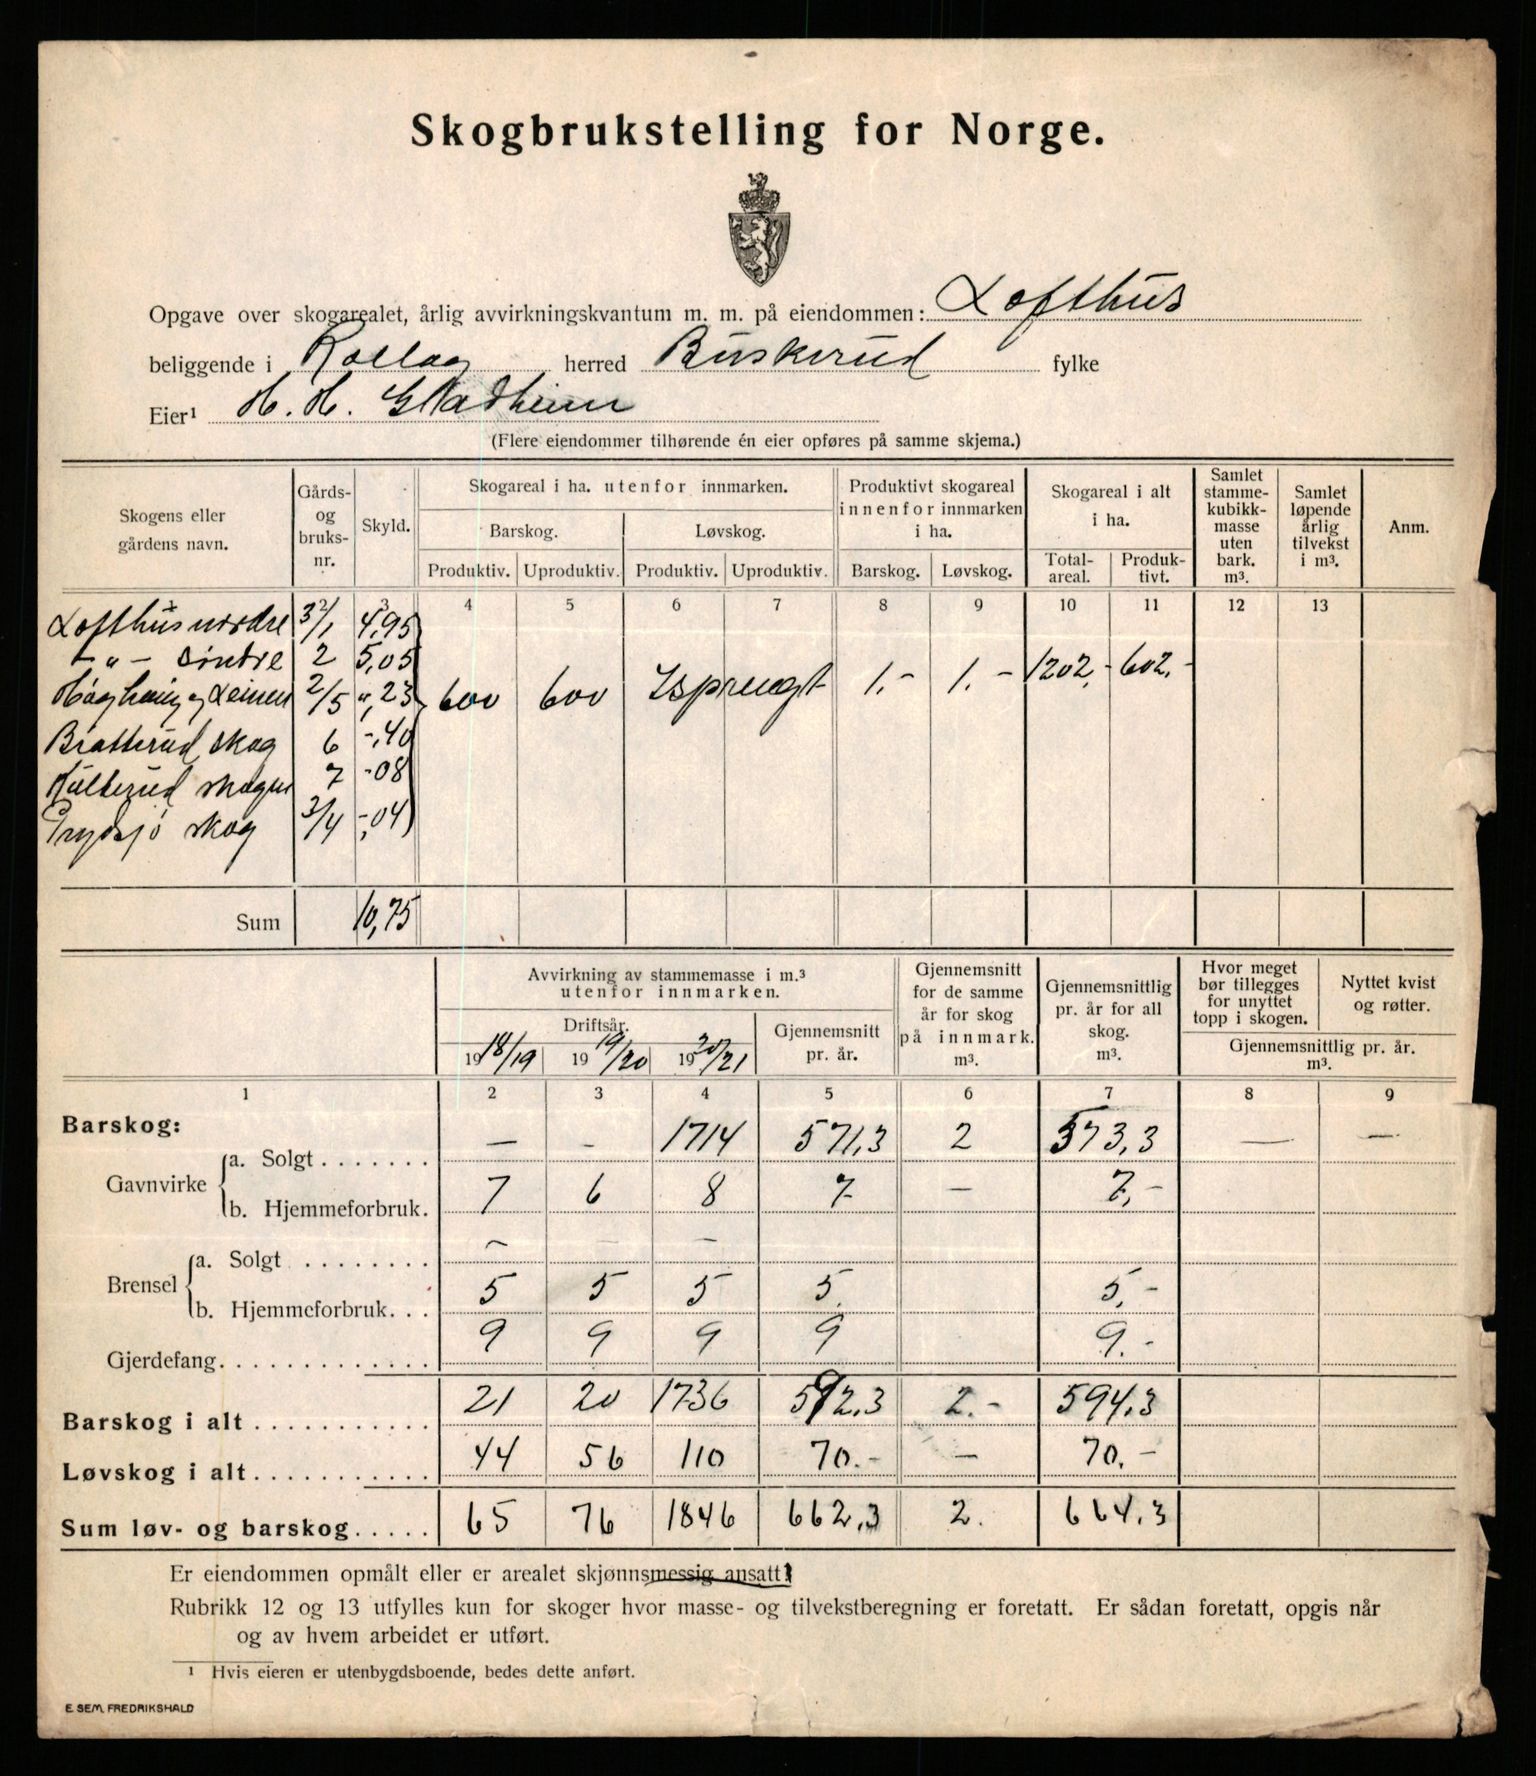 Skogbrukstelling for Norge.
Opgave over skogarealet, årlig avvirkningskvantum m. m. på eiendommen: Lofthus
beliggende i Rollag herred Buskerud fylke
Eier¹ H. H. Gladheim
(Flere eiendommer tilhørende én eier opføres på samme skjema.)
Skogens eller gårdens navn. Gårds- og bruks- nr. Skyld. Skogareal i ha. utenfor innmarken. Produktivt skogareal innenfor innmarken i ha. Skogareal i alt i ha. Samlet stamme- kubikk- masse uten bark. m³. Samlet løpende årlig tilvekst i m³. Anm.
Barskog. Løvskog.
Produktiv. Uproduktiv. Produktiv. Uproduktiv. Barskog. Løvskog. Total- areal. Produk- tivt.
1 2 3 4 5 6 7 8 9 10 11 12 13
Lofthus nordre 3/1 4,95
-"- søndre 2 5,05 1202,- 602,-
Høghaug og Leinen 2/5 ",23 600 600 Isprengt 1.- 1.-
Bratterud skog 6 -,40
Hulterud skogen 7 -08
skog 3/4 -,04
Sum 10,75
Avvirkning av stammemasse i m.³ utenfor innmarken. Gjennemsnitt for de samme år for skog på innmark. m³. Gjennemsnittlig pr. år for all skog. m³. Hvor meget bør tillegges for unyttet topp i skogen. Nyttet kvist og røtter.
Driftsår. Gjennemsnitt pr. år. Gjennemsnittlig pr. år. m³.
19 18/19 19 19/20 19 20/21
1 2 3 4 5 6 7 8 9
Barskog:
Gavnvirke a. Solgt . . . . . . . — - 1714 571,3 2 573,3 — —
b. Hjemmeforbruk. 7 6 8 7- — 7,-
Brensel a. Solgt . . . . . . . . – – –
b. Hjemmeforbruk. . . 5 5 5 5. 5,-
Gjerdefang. . . . . . . . . . . . . 9 9 9 9 9.-
Barskog i alt . . . . . . . . . . . 21 20 1736 592,3 2.- 594,3
Løvskog i alt. . . . . . . . . . . 44 56 110 70.- — 70,-
Sum løv- og barskog. . . . . 65 76 1846 662,3 2. 664,3
Er eiendommen opmålt eller er arealet skjønnsmessig ansatt?
Rubrikk 12 og 13 utfylles kun for skoger hvor masse- og tilvekstberegning er foretatt. Er sådan foretatt, opgis når
og av hvem arbeidet er utført.
¹ Hvis eieren er utenbygdsboende, bedes dette anført.
E. SEM, FREDRIKSHALD